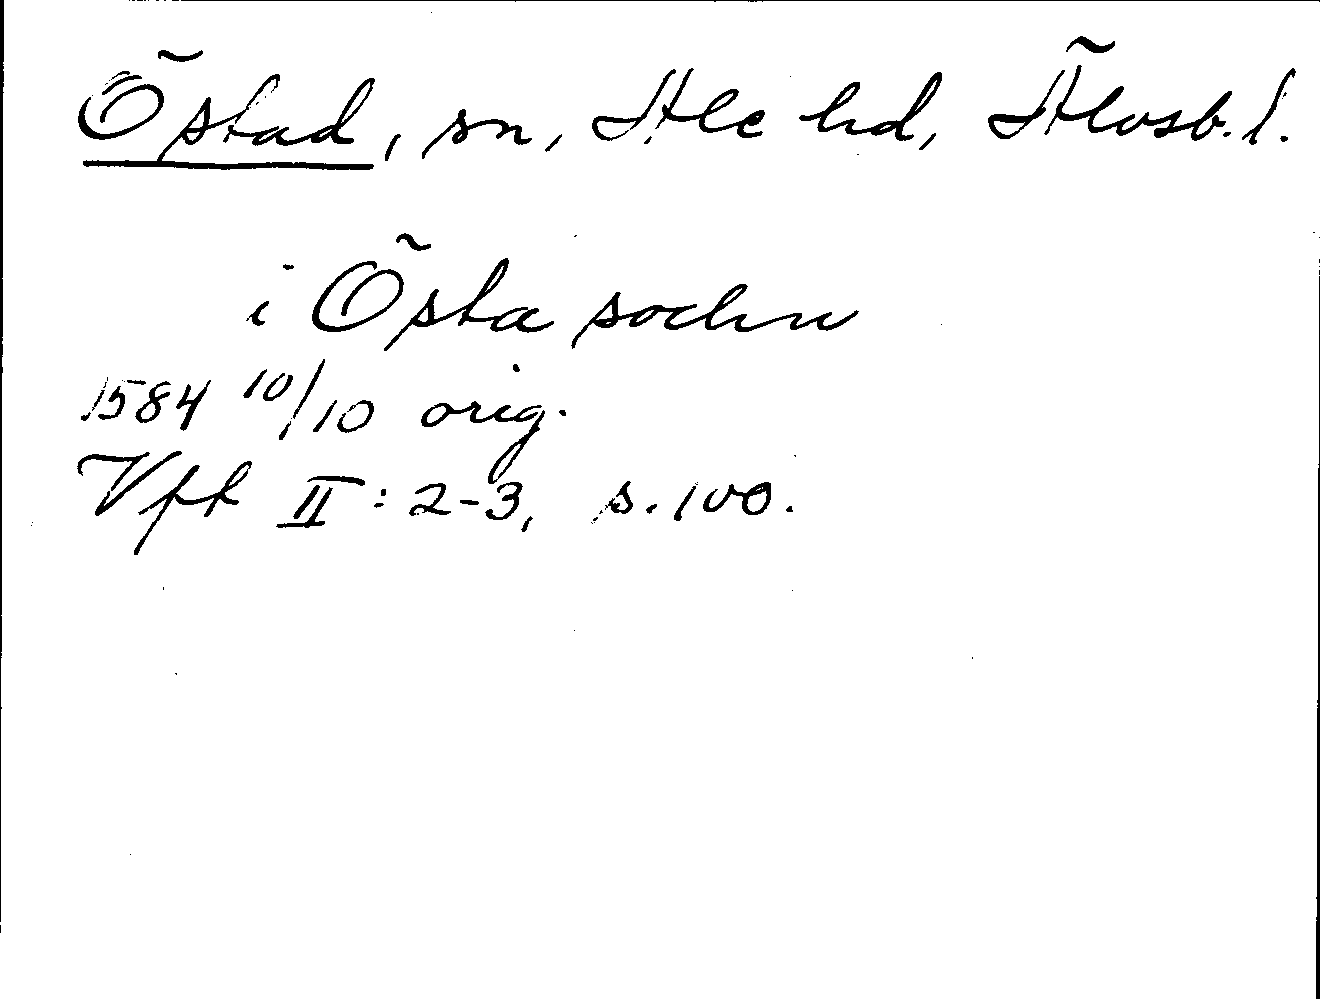 Östad, sn, Ale hd, Älvsb. l.
i Östa sochn
1584 10/10 orig.
Vfk II: 2-3, s. 100.